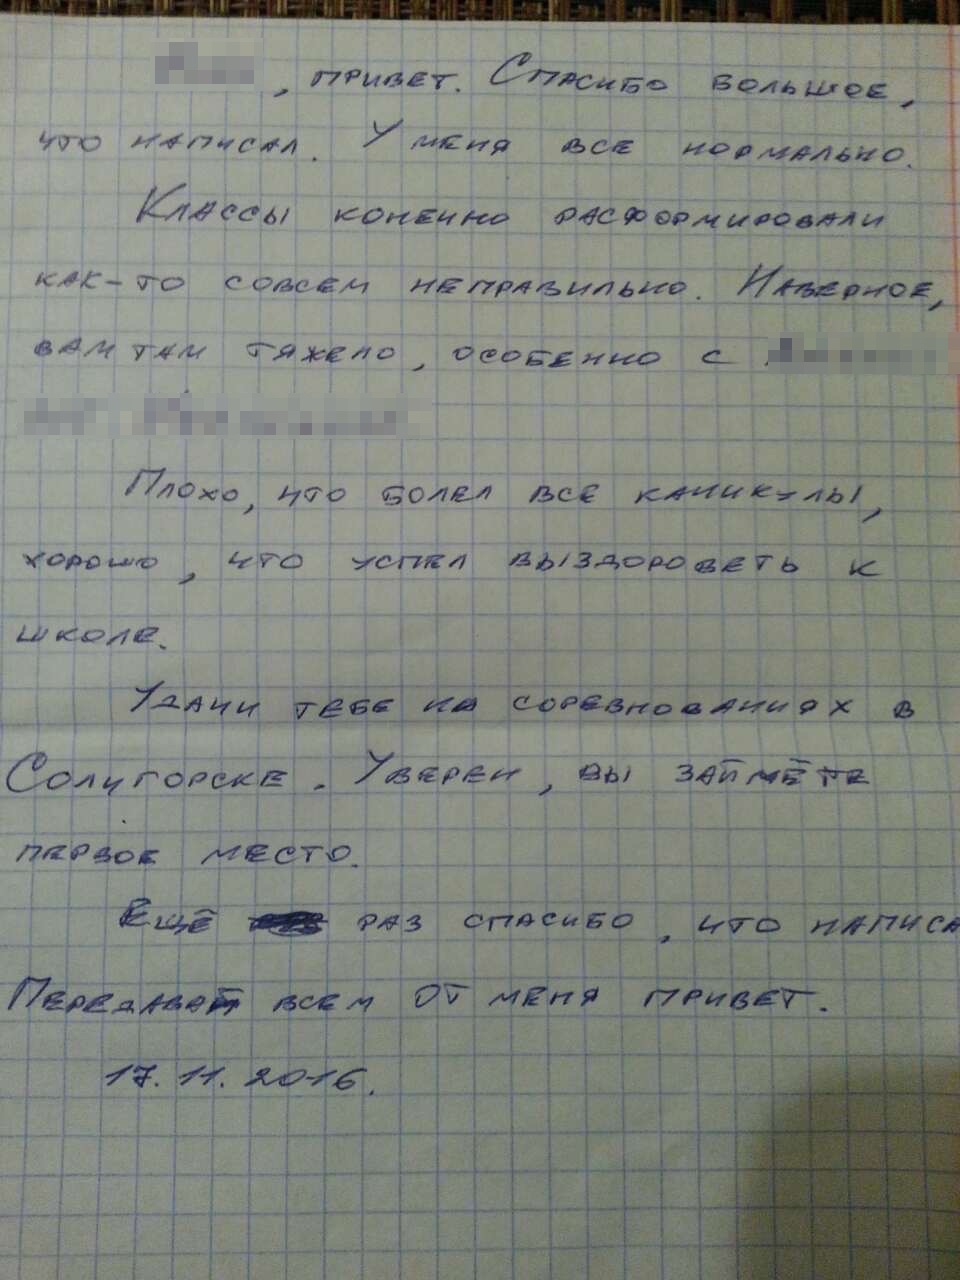 , привет. Спасибо большое,
что написал. У меня все нормально.
Классы конечно расформировали
как-то совсем неправильно. Наверное,
вам там тяжело, особенно с
Плохо, что болел все каникулы,
хорошо, что успел выздороветь к
школе.
Удачи тебе на соревнованиях в
Солигорске. Уверен, вы займёте
первое место.
Ещё раз спасибо, что написа
Передавай всем от меня привет.
17.11.2016.